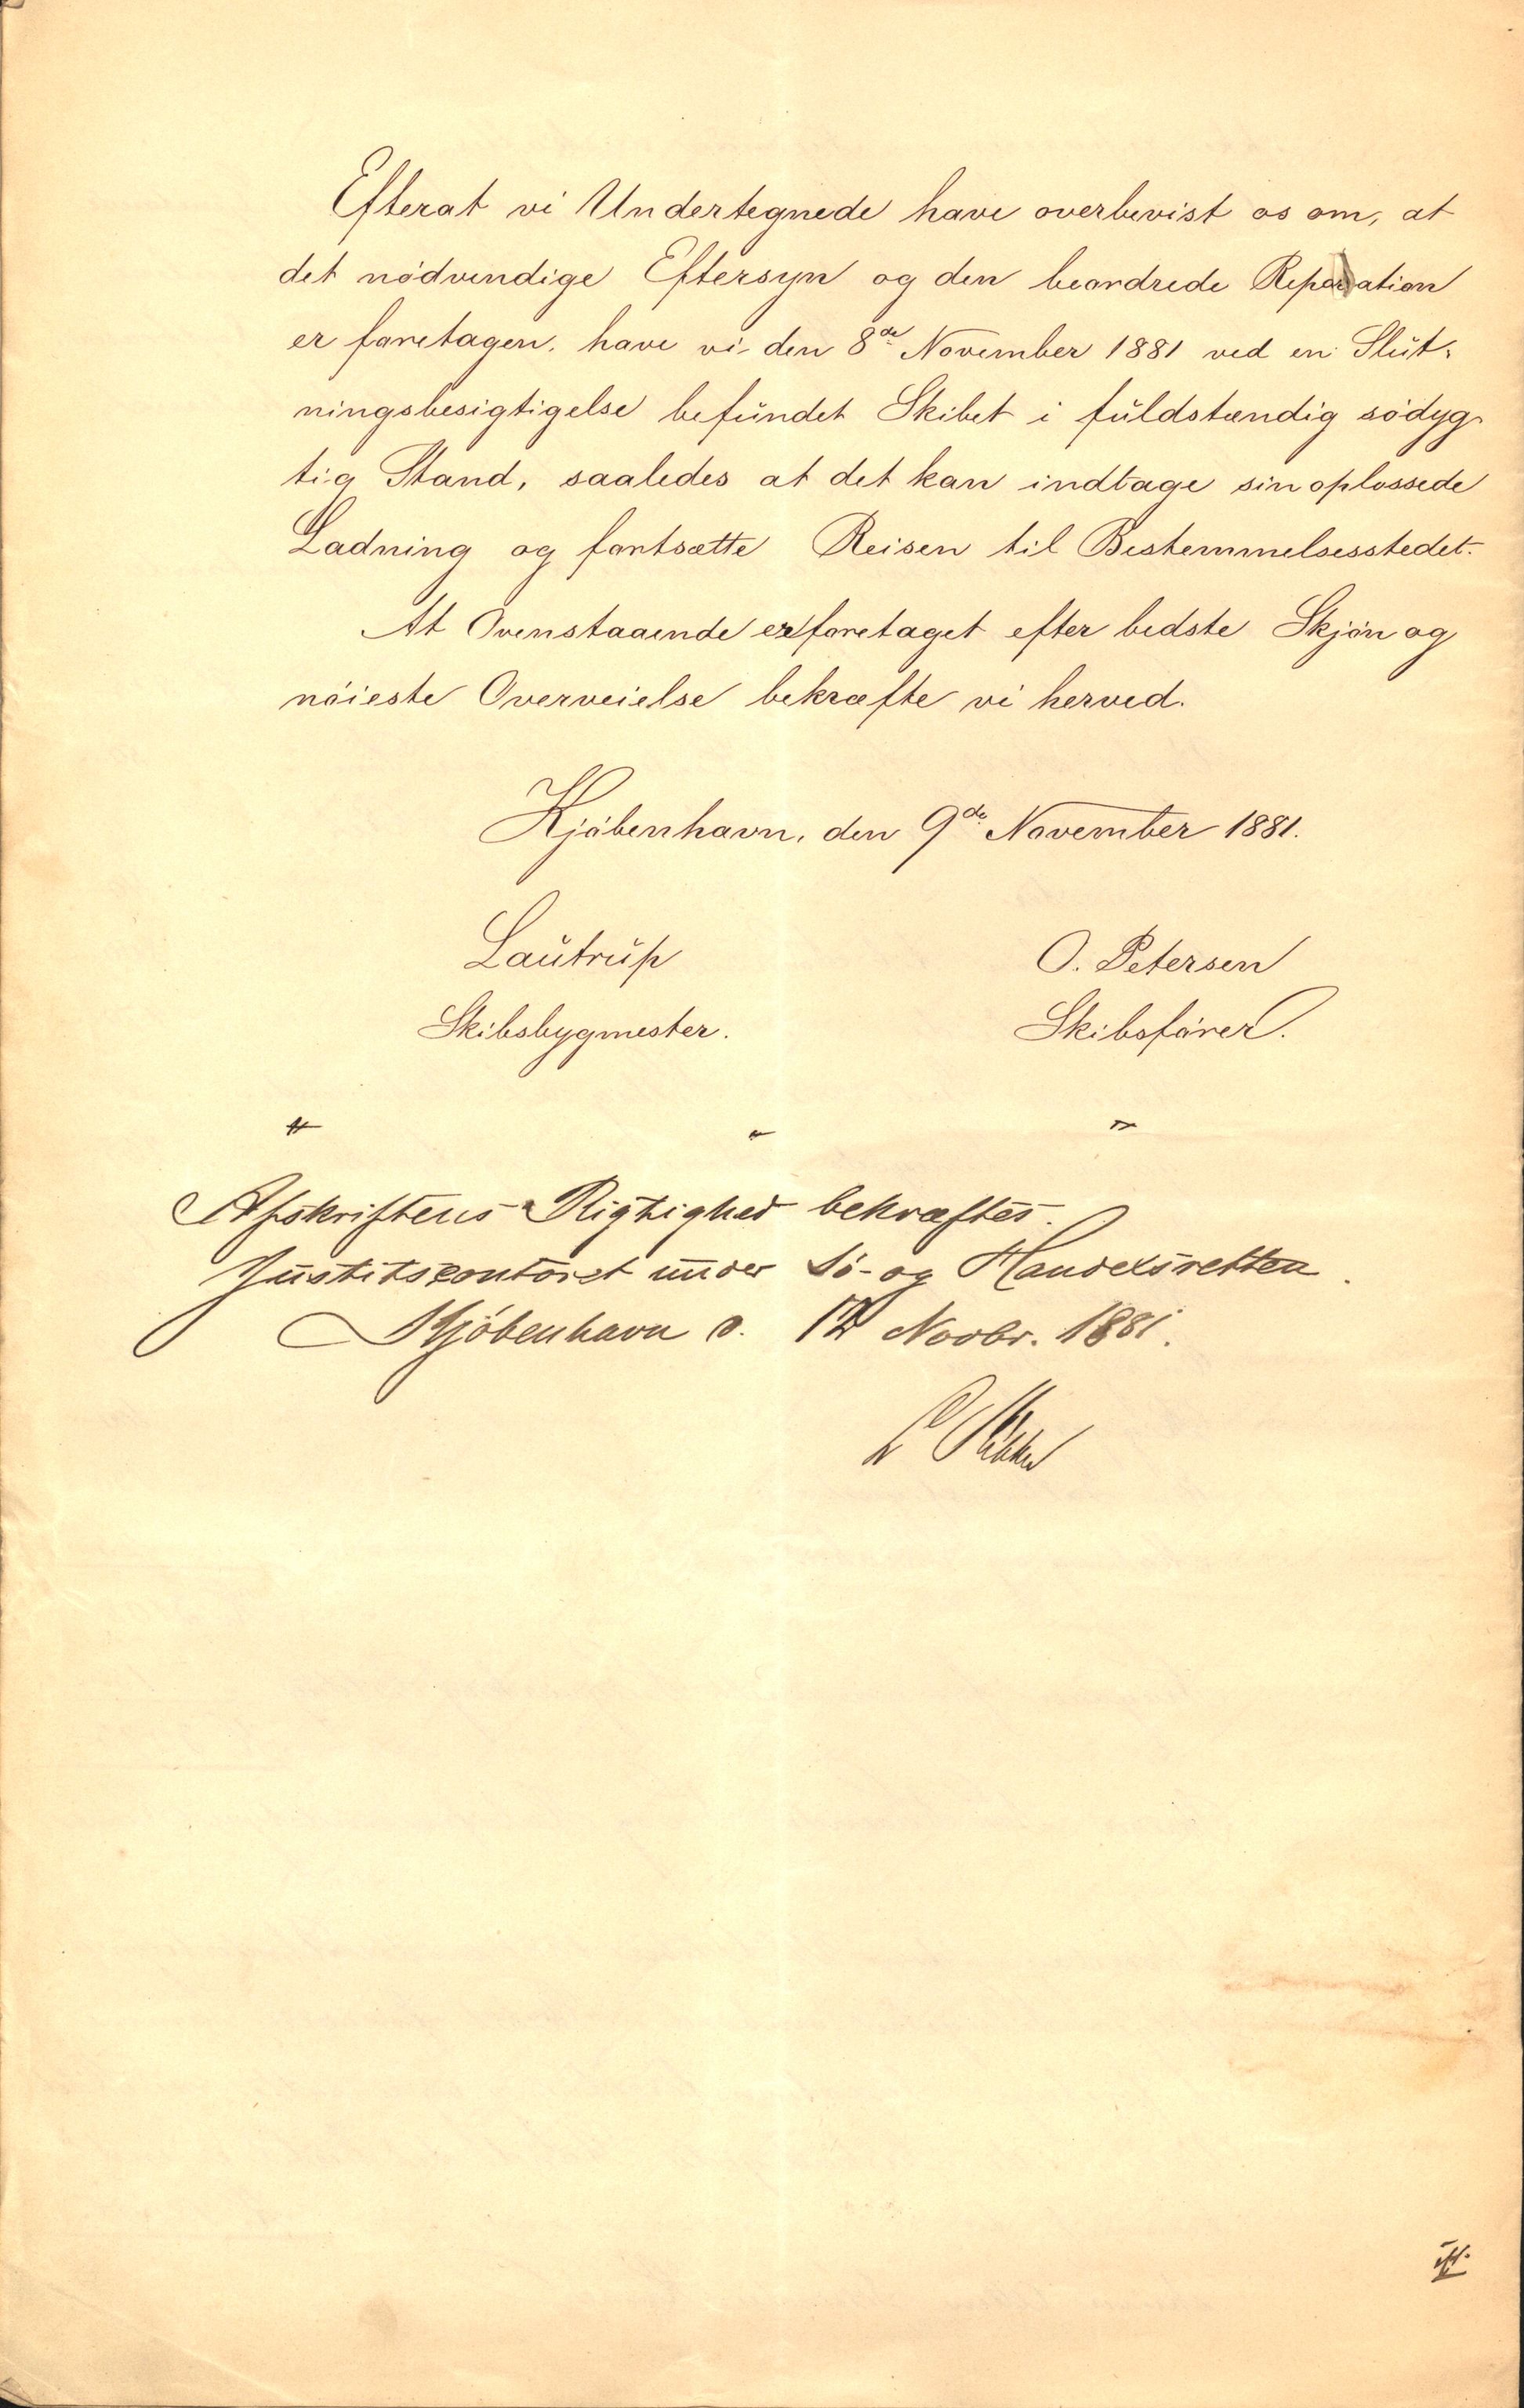 Efterat vi Undertegnede have overbevist os om, at
det nödvendige Eftersyn og den beordrede Reparation
er foretagen, have vi den 8de November 1881 ved en Slut-
ningsbesigtigelse befundet Skibet i fuldstændig södyg-
tig Stand, saaledes at det kan indtage sin oplossede
Ladning og fortsætte Reisen til Bestemmelsesstedet.
At Ovenstaaende er foretaget efter bedste Skjön og
nöieste Overveielse bekræfte vi herved.
Kjöbenhavn, den 9de November 1881.
Lautrup O. Petersen
Skibsbygmester. Skibsförer.
Afskriftens Rigtighed bekræftes.
Justitscontoret under Sö- og Handelsretten.
Kjöbenhavn d. 12 Novbr. 1881.